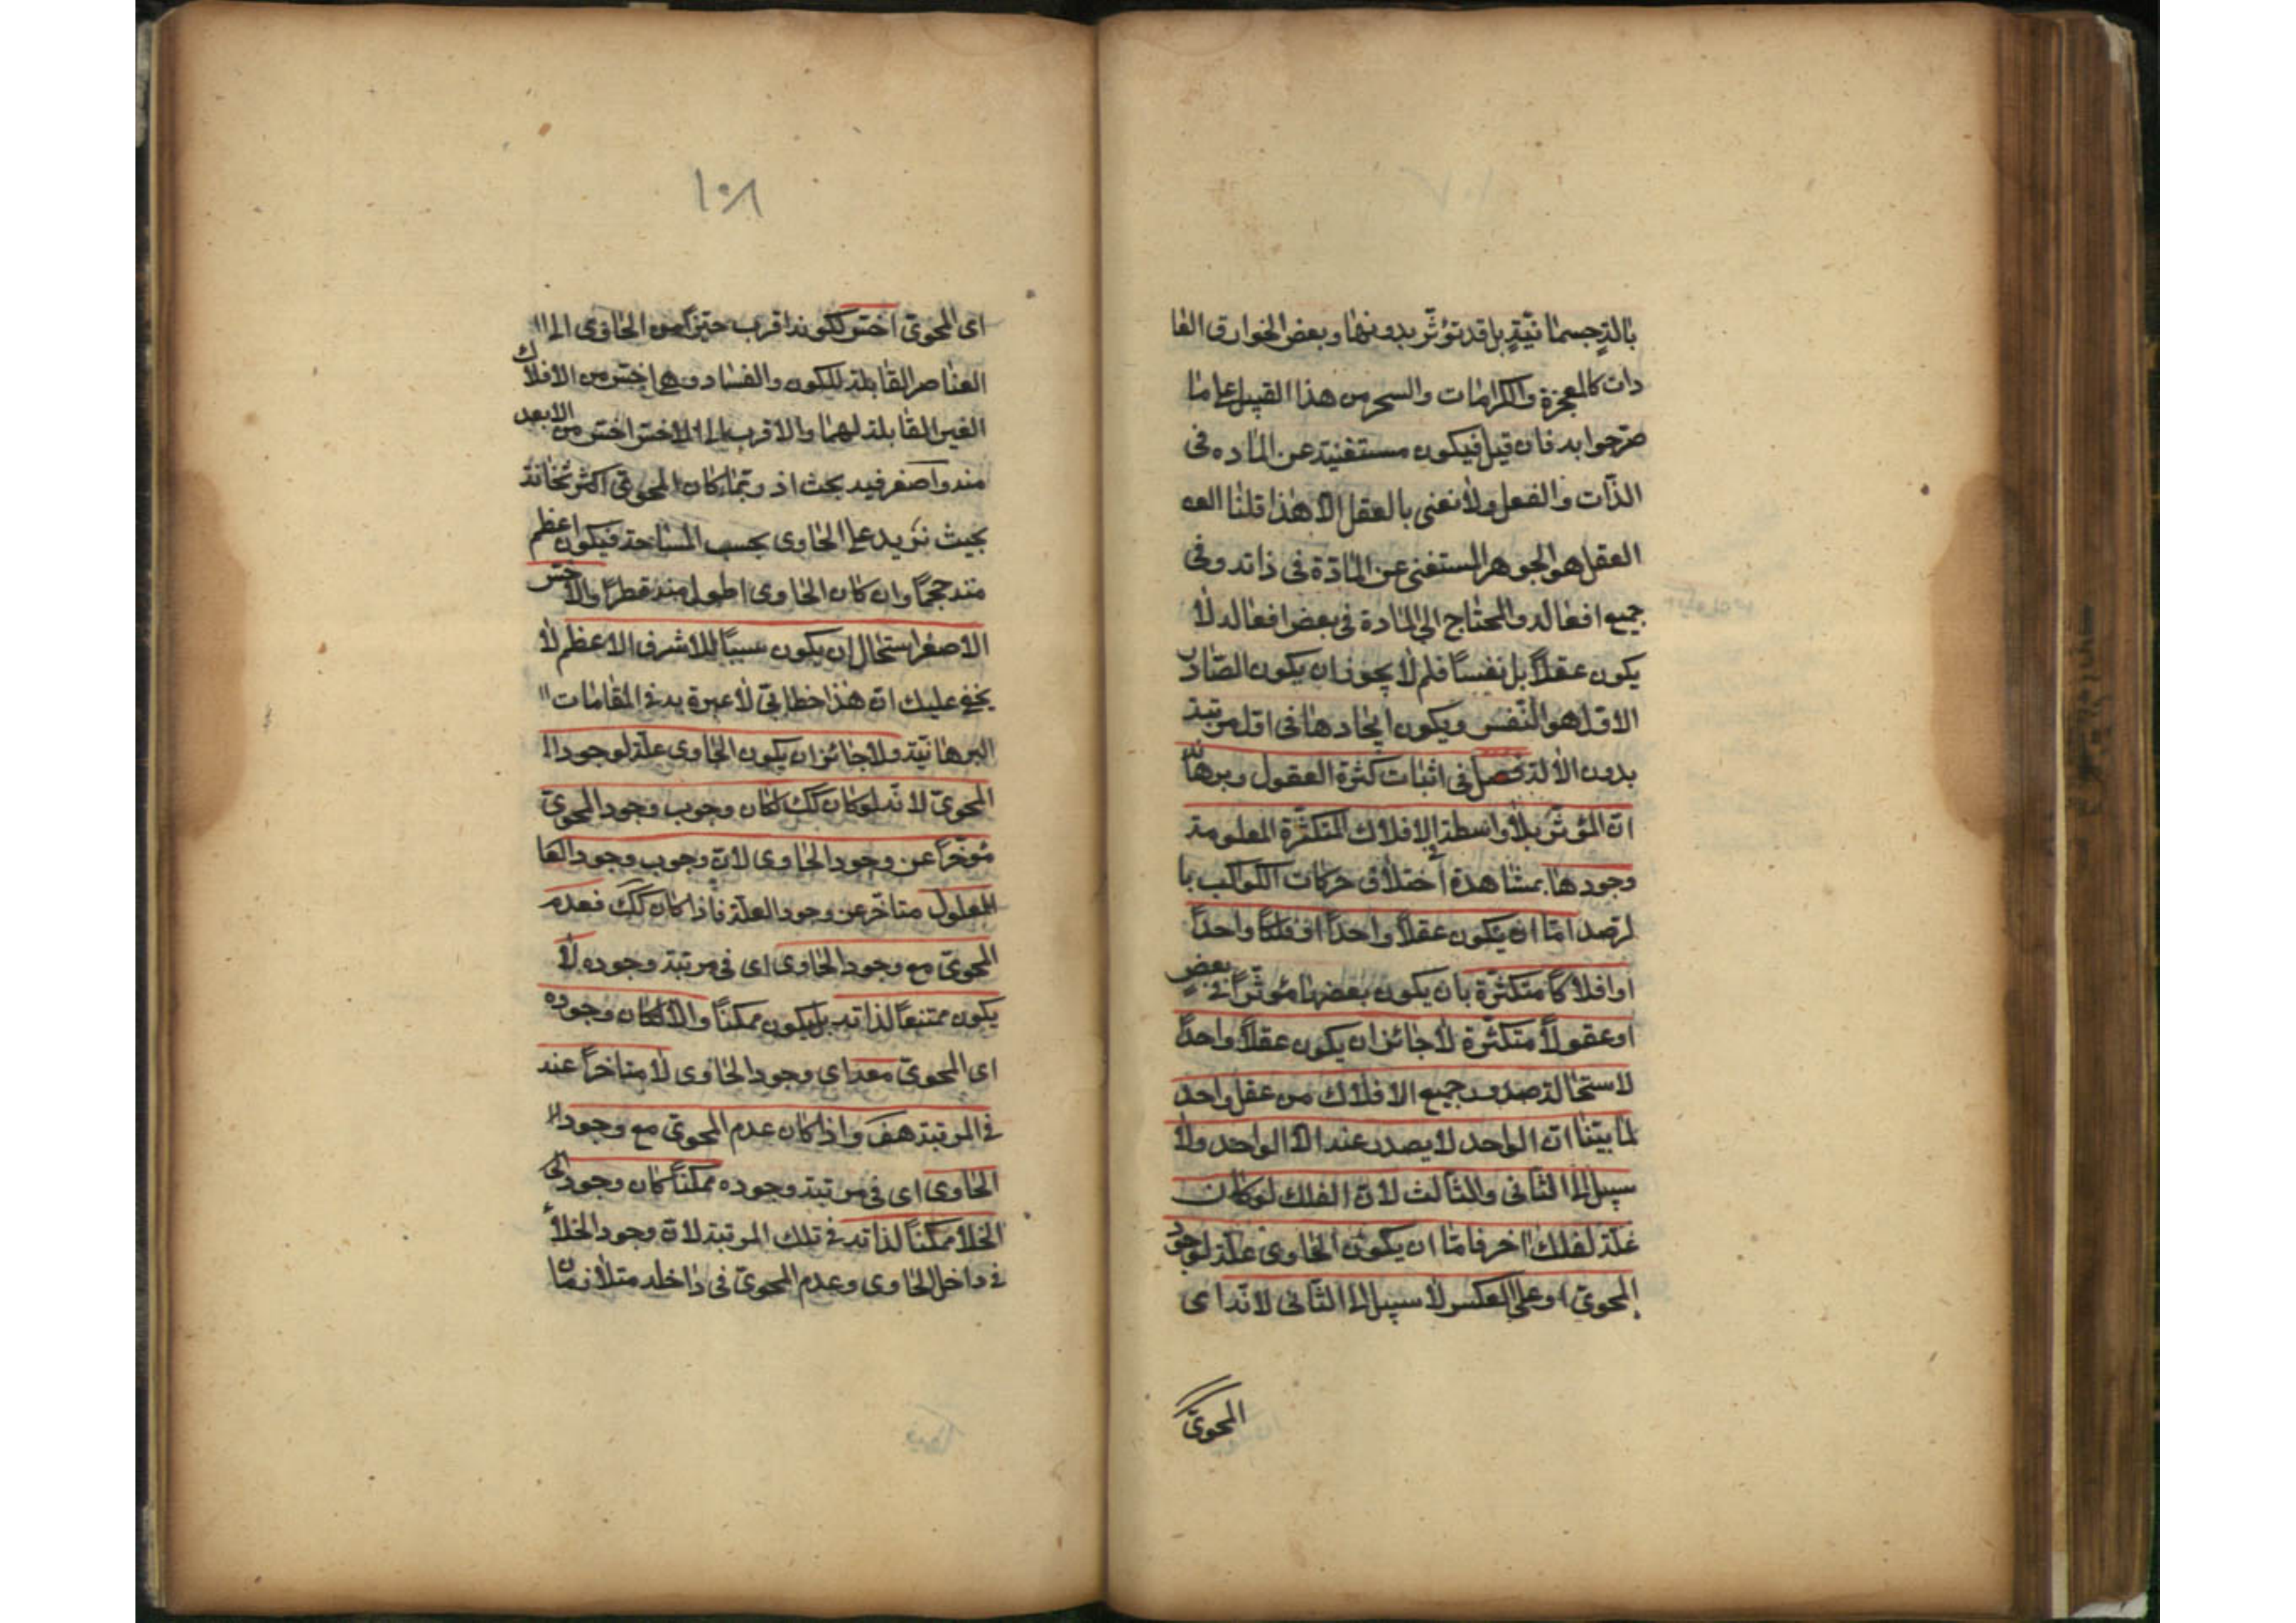 بالة جسمانية بل قد تؤثر بدونها وبعض الخوارق العا
دات كالمعجزة والكرامات والسحر من هذا القبيل على ما
صرحوا به فان قيل فيكون مستغنية عن المادة فى
الذات والفعل ولا نعنى بالعقل الا هذا قلنا
العقل هو الجوهر المستغنى عن المادة فى ذاته وفى
جميع افعاله والمحتاج الى المادة فى بعض افعاله لا
يكون عقلاً بل نفساً فلم لا يجوز ان يكون الصادر
الاول هو النفس ويكون ايجادها فى اول مرتبة
بدون الالة فصل فى اثبات كثرة العقول وبرهانه
ان المؤثر بلا واسطة الافلاك المتكثرة المعلومة
وجودها بمشاهدة اختلاف حركات الكواكب با
لرصد اما ان يكون عقلاً واحداً او فلكاً واحداً
او افلاكاً متكثرة بان يكون بعضها مؤثراً فى بعض
او عقولاً متكثرة لا جائز ان يكون عقلاً واحداً
لاستحالة صدور جميع الافلاك من عقل واحد
لما بينا ان الواحد لا يصدر عنه الا الواحد ولا
سبيل الى الثانى والثالث لان الفلك لو كان
علة لفلك اخر فاما ان يكون الحاوى علة لوجود
المحوى او على العكس لا سبيل الى الثانى لانه اى
المحوى
١٠٨
اى المحوى اخس لكونه اقرب حيزاً من الحاوى الى
العناصر القابلة للكون والفساد وهى اخس من الافلاك
الغير القابلة لهما والاقرب الى الاخس اخس من الابعد
منه واصغر فيه بحث اذ ربما كان المحوى اكثر ثخانة
بحيث تزيد على الحاوى بحسب المساحة فيكون اعظم
منه حجماً وان كان الحاوى اطول منه قطراً والاخس
الاصغر استحال ان يكون سبباً للاشرف الاعظم لا
يخفى عليك ان هذا خطابى لا عبرة به فى المقامات
البرهانية ولا جائز ان يكون الحاوى علة لوجود ا
المحوى لانه لو كان كك لكان وجوب وجود المحوى
مؤخراً عن وجود الحاوى لان وجوب وجود العا
المعلول متاخر عن وجود العلة فاذا كان كك فعدم
المحوى مع وجود الحاوى اى فى مرتبة وجوده لا
يكون ممتنعاً لذاته بل يكون ممكناً والا لكان وجوده
اى المحوى معه اى وجود الحاوى لا متاخراً عنه
فى المرتبة هف واذا كان عدم المحوى مع وجود ا
الحاوى اى فى مرتبة وجوده ممكناً كان وجود الخ
الخلأ ممكناً لذاته فى تلك المرتبة لان وجود الخلأ
فى داخل الحاوى وعدم المحوى فى داخله متلازمان